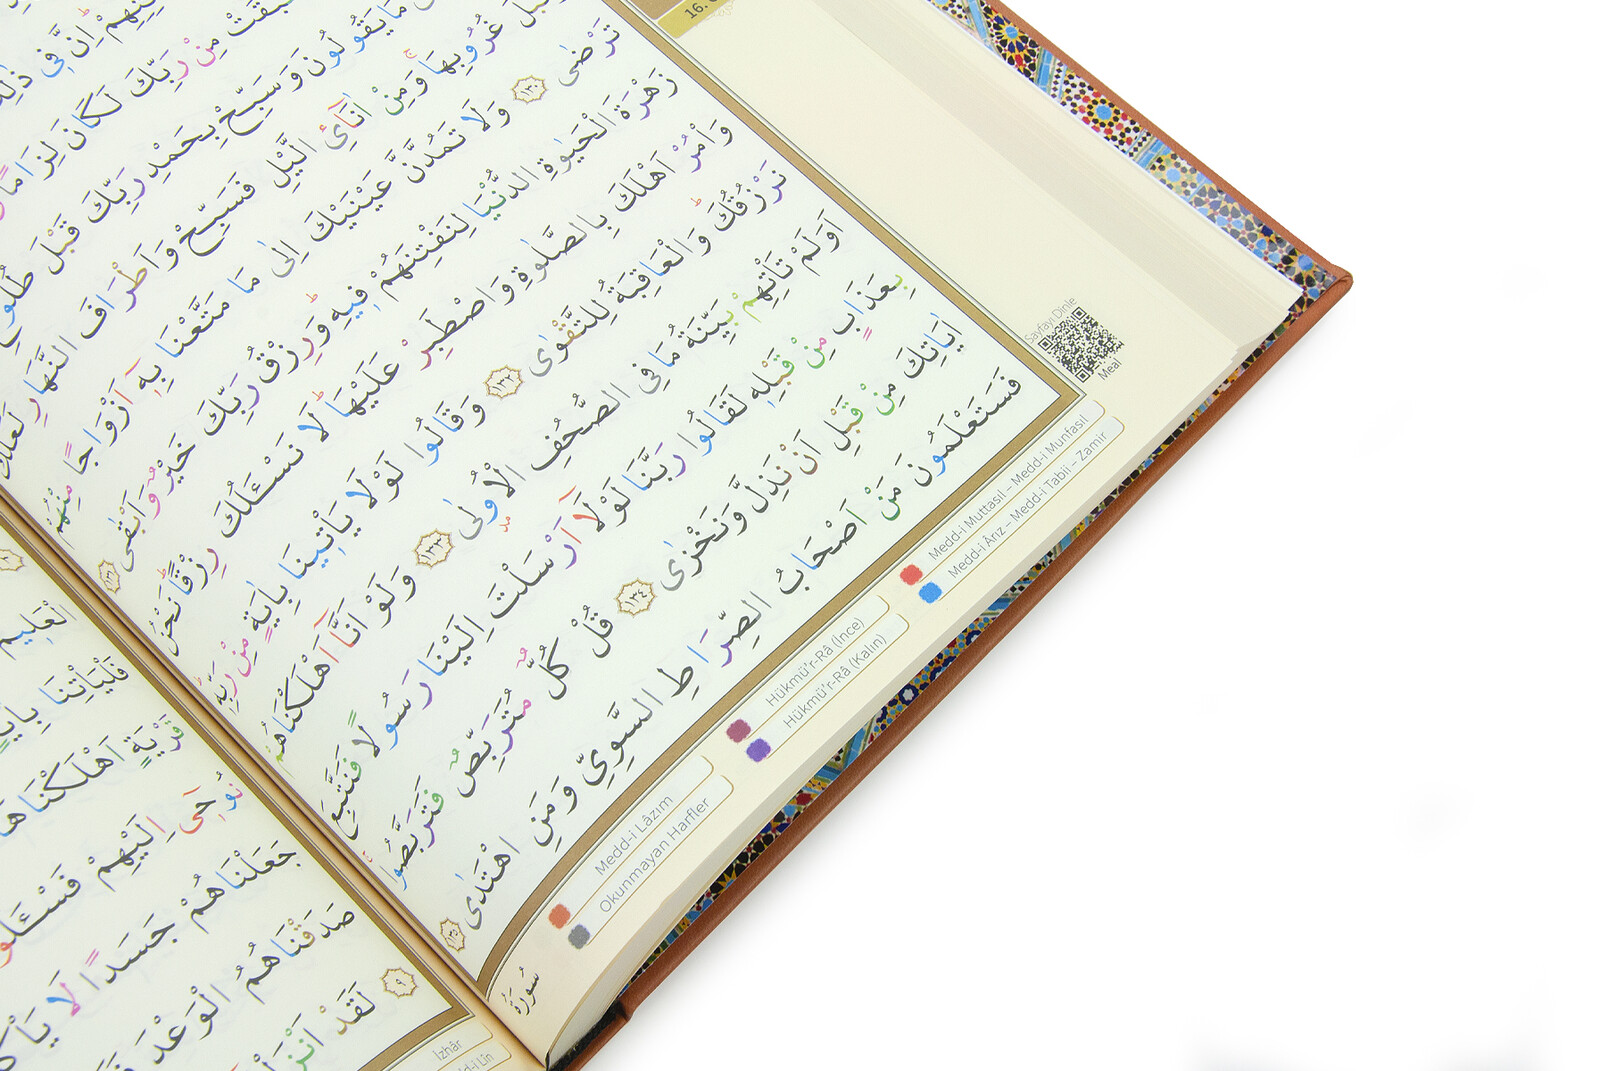 اِنَّ فِى ذٰلِكَ
سَبَقَتْ مِنْ رَبِّكَ لَكَانَ لِزَامًا
مَا يَقُولُونَ وَسَبِّحْ بِحَمْدِ رَبِّكَ قَبْلَ طُلُوعِ
غُرُوبِهَا وَمِنْ اٰنَآئِ الَّيْلِ فَسَبِّحْ وَاَطْرَافَ النَّهَارِ لَعَلَّكَ
تَرْضٰى ﴿١٣٠﴾ وَلَا تَمُدَّنَّ عَيْنَيْكَ اِلٰى مَا مَتَّعْنَا بِهٖٓ اَزْوَاجًا مِنْهُمْ
زَهْرَةَ الْحَيٰوةِ الدُّنْيَا لِنَفْتِنَهُمْ فِيهِ وَرِزْقُ رَبِّكَ خَيْرٌ وَاَبْقٰى ﴿١٣١﴾
وَأْمُرْ اَهْلَكَ بِالصَّلٰوةِ وَاصْطَبِرْ عَلَيْهَا لَا نَسْـَٔلُكَ رِزْقًا نَحْنُ
نَرْزُقُكَ وَالْعَاقِبَةُ لِلتَّقْوٰى ﴿١٣٢﴾ وَقَالُوا لَوْلَا يَأْتِينَا بِاٰيَةٍ مِنْ رَبِّهٖ
اَوَلَمْ تَأْتِهِمْ بَيِّنَةُ مَا فِى الصُّحُفِ الْاُولٰى ﴿١٣٣﴾ وَلَوْ اَنَّٓا اَهْلَكْنَاهُمْ
بِعَذَابٍ مِنْ قَبْلِهٖ لَقَالُوا رَبَّنَا لَوْلَٓا اَرْسَلْتَ اِلَيْنَا رَسُولًا فَنَتَّبِعَ
اٰيَاتِكَ مِنْ قَبْلِ اَنْ نَذِلَّ وَنَخْزٰى ﴿١٣٤﴾ قُلْ كُلٌّ مُتَرَبِّصٌ فَتَرَبَّصُوا
فَسَتَعْلَمُونَ مَنْ اَصْحَابُ الصِّرَاطِ السَّوِىِّ وَمَنِ اهْتَدٰى ﴿١٣٥﴾
Sayfayı Dinle
Meal
Medd-i Muttasıl – Medd-i Munfasıl
Medd-i Ârız – Medd-i Tabii – Zamir
Hükmü'r-Râ (İnce)
Hükmü'r-Râ (Kalın)
Medd-i Lâzım
Okunmayan Harfler
سُورَةُ
الْعَلِيمُ
فَلْيَأْتِنَا بِاٰيَةٍ
قَرْيَةٍ اَهْلَكْنَاهَا
نُوحٖٓى اِلَيْهِمْ فَسْـَٔلُوا
جَعَلْنَاهُمْ جَسَدًا لَا
صَدَقْنَاهُمُ الْوَعْدَ
﴿٩﴾ لَقَدْ
İzhâr